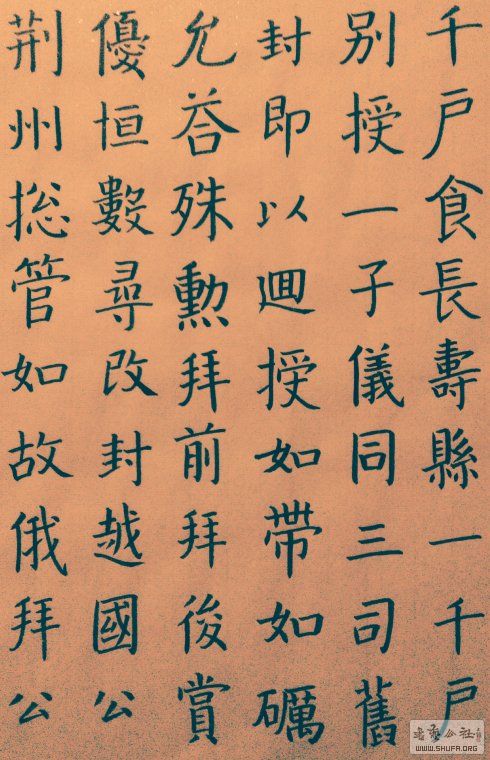 千戶食長壽縣一千戶
別授一子儀同三司舊
封即以迴授如帶如礪
允荅殊勲拜前拜後賞
優恒數尋改封越國公
荆州揔管如故俄拜公
书艺公社
WWW.SHUFA.ORG